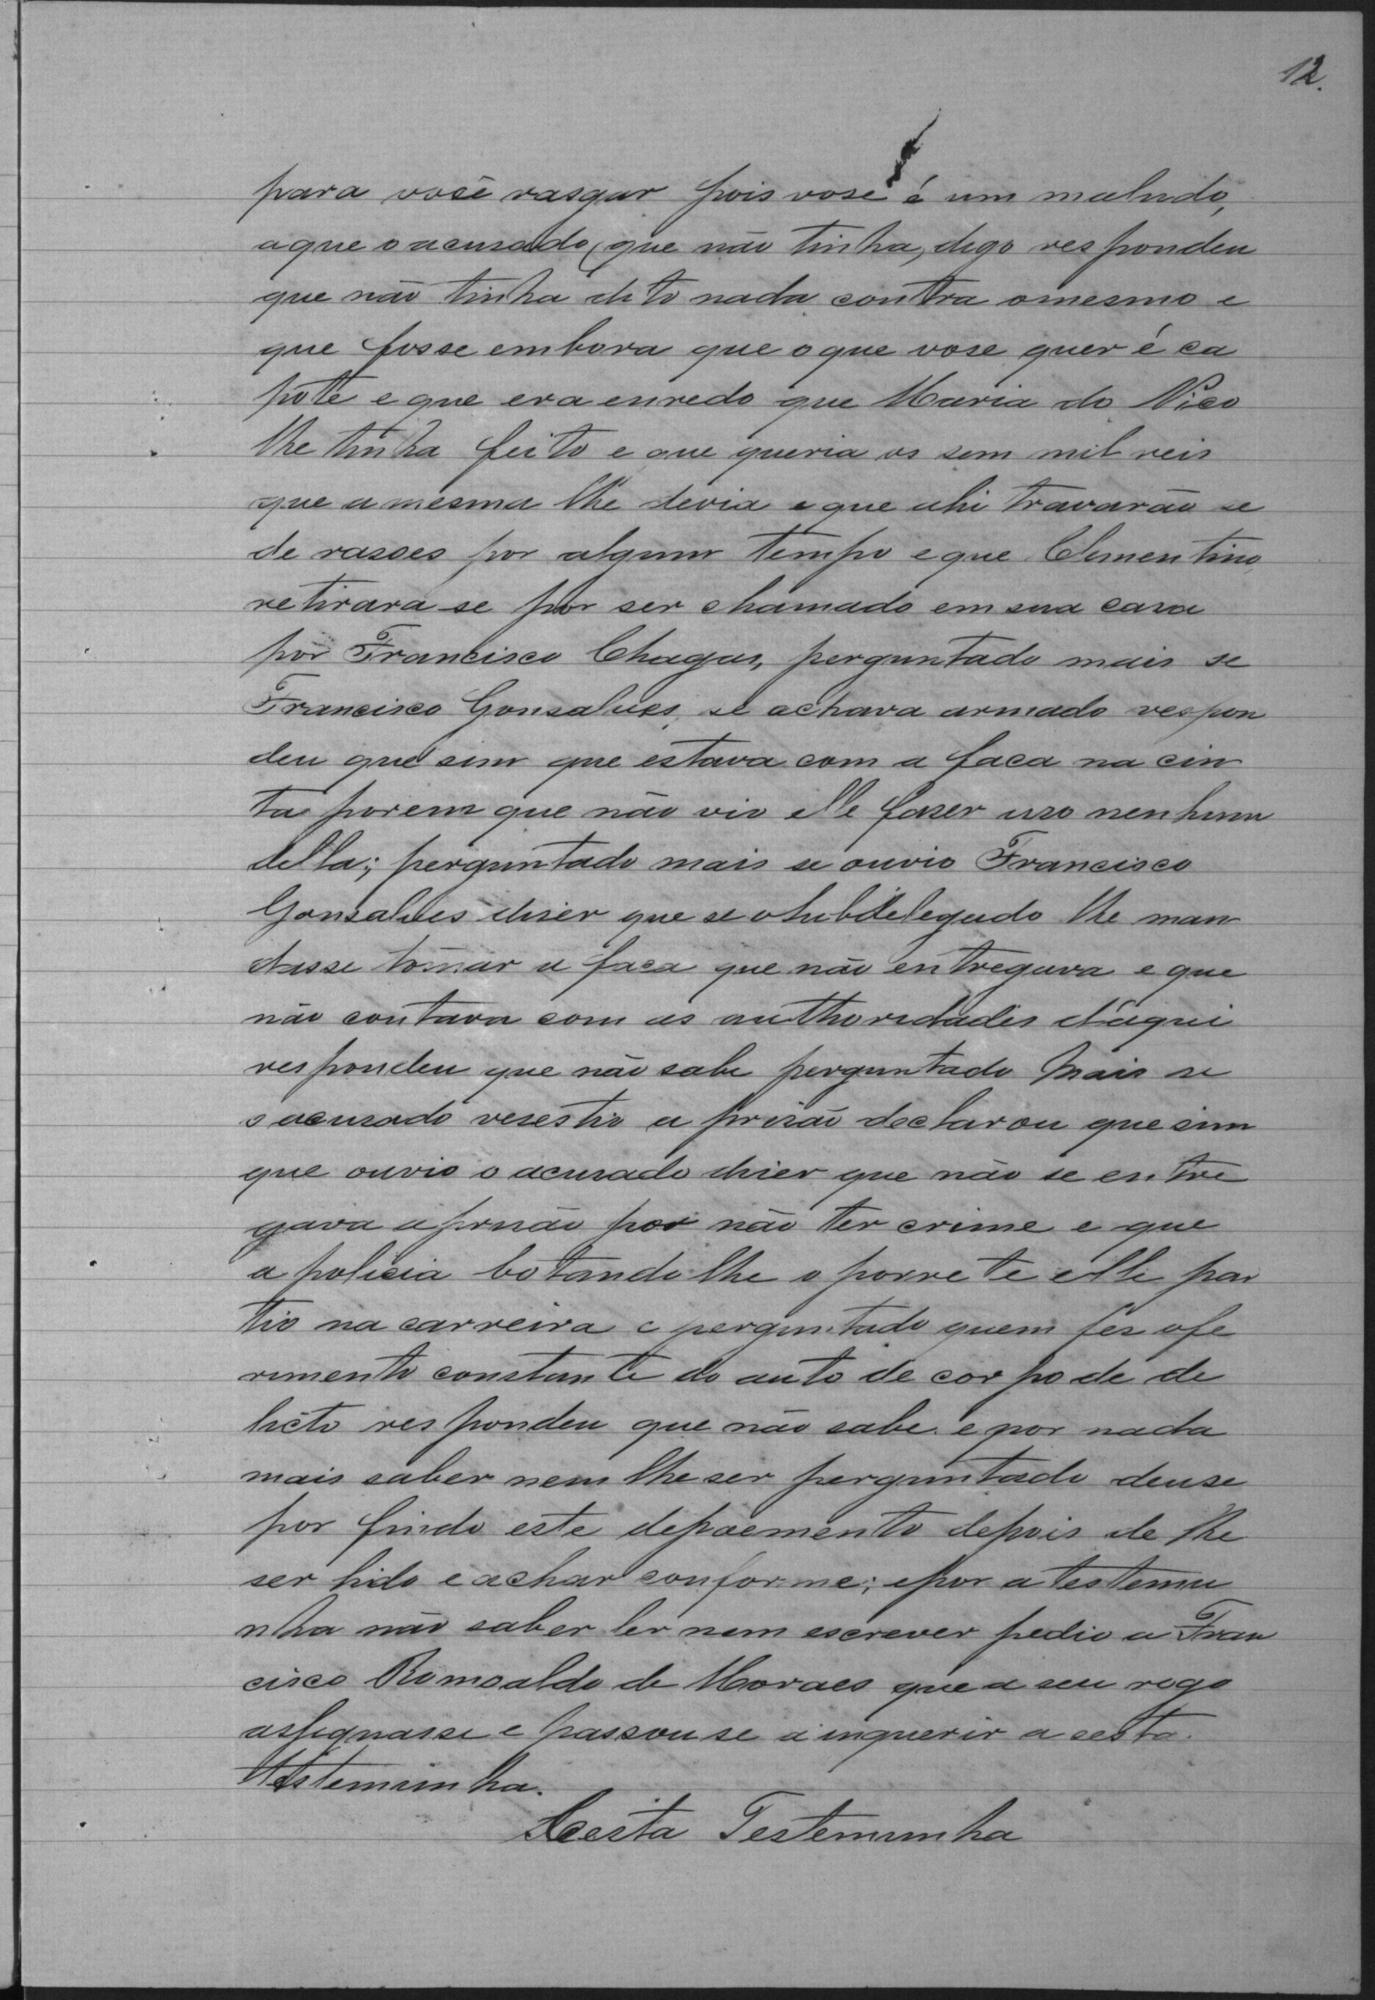 12.
para você rasgar pois vose é um maludo,
a que o acusado, que não tinha, digo respondeu
que não tinha dito nada contra o mesmo e
que fosse embora que o que vose quer é ca
pote e que era enredo que Maria do Nico
lhe tinha feito e que queria os sem mil reis
que a mesma lhe devia e que ahi travarão se
de rasoes por algum tempo e que Clementino
retirara-se por ser chamado em sua casa
por Francisco Chagas, perguntado mais se
Francisco Gonsalves, se achava armado respon
deu que sim que estava com a faca na cin
ta porem que não vio elle faser uso nenhum
della; perguntado mais se ouvio Francisco
Gonsalves diser que se o subdelegado lhe man
dasse tomar a faca que não entregava e que
não contava com as authoridades d'aqui
respondeu que não sabe perguntado mais se
o acusado resestio a prisão declarou que sim
que ouvio o acusado diser que não se entre
gava a prisão por não ter crime e que
a policia botando lhe o porrete elle par
tio na carreira e perguntado quem fes o fe
rimento constante do auto de corpo de de
licto respondeu que não sabe e por nada
mais saber nem lhe ser perguntado deu se
por findo este depoemento depois de lhe
ser lido e achar conforme; e por a testemu
nha não saber ler nem escrever pedio a Fran
cisco Romoaldo de Moraes que a seu rogo
assignasse e passou se a inquerir a sesta
testemunha.
Sesta Testemunha